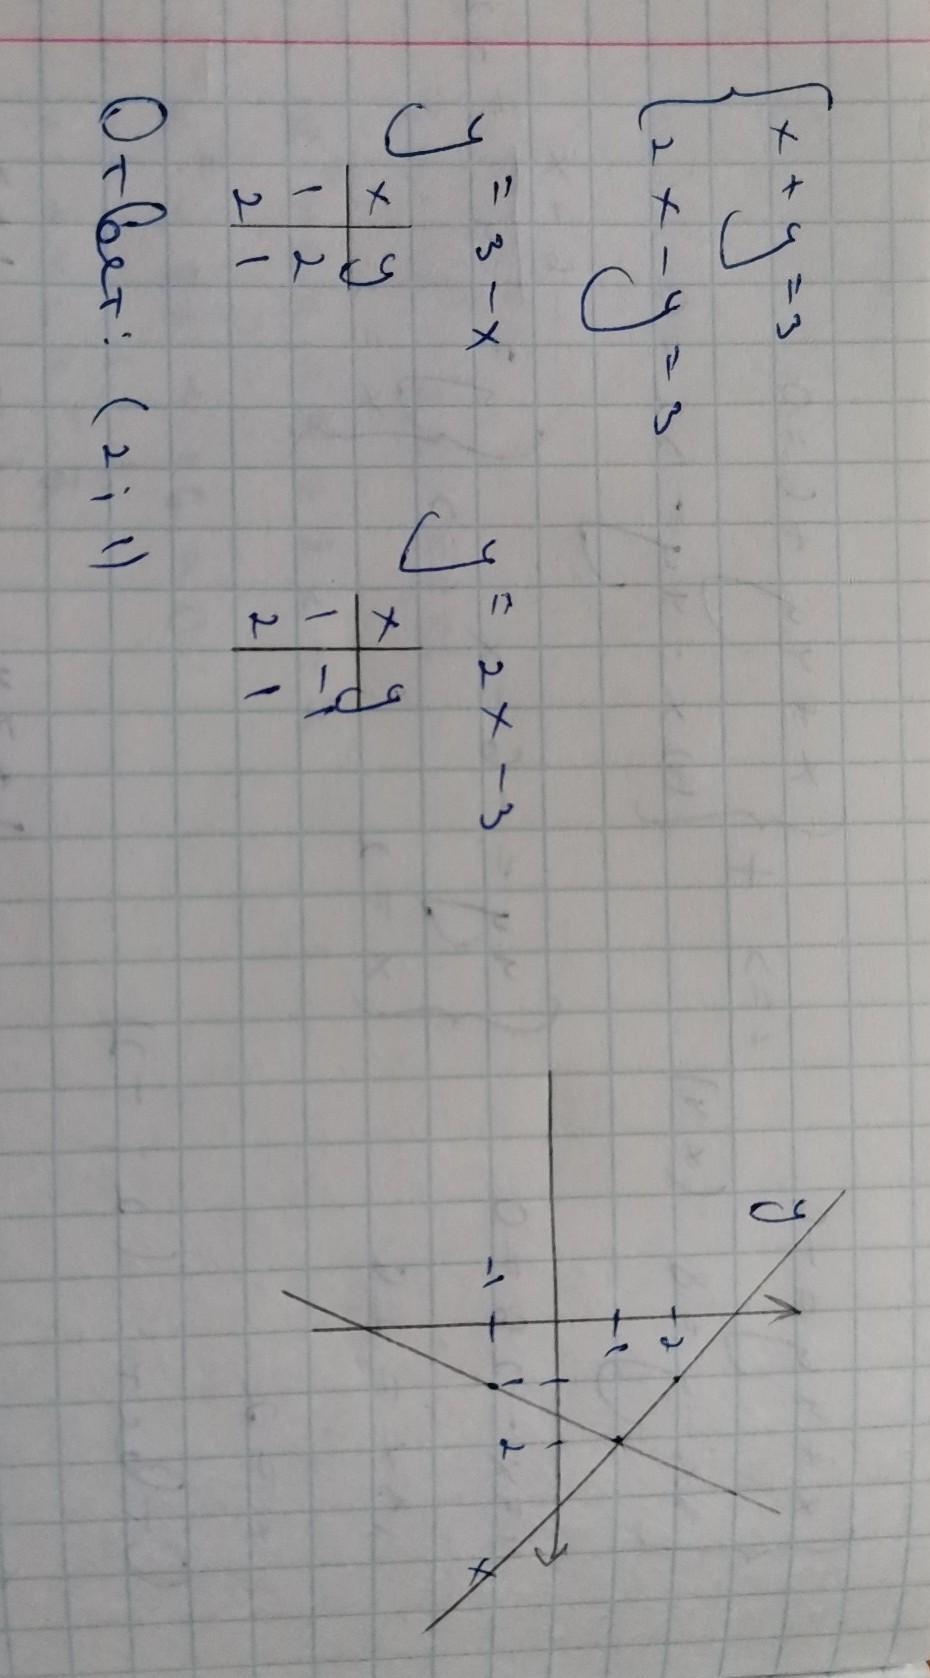 x + y = 3
2x - y = 3
y = 3 - x
x y
1 2
2 1
y = 2x - 3
x y
1 -1
2 1
y
2
1
-1
1 2
x
Ответ: (2; 1)